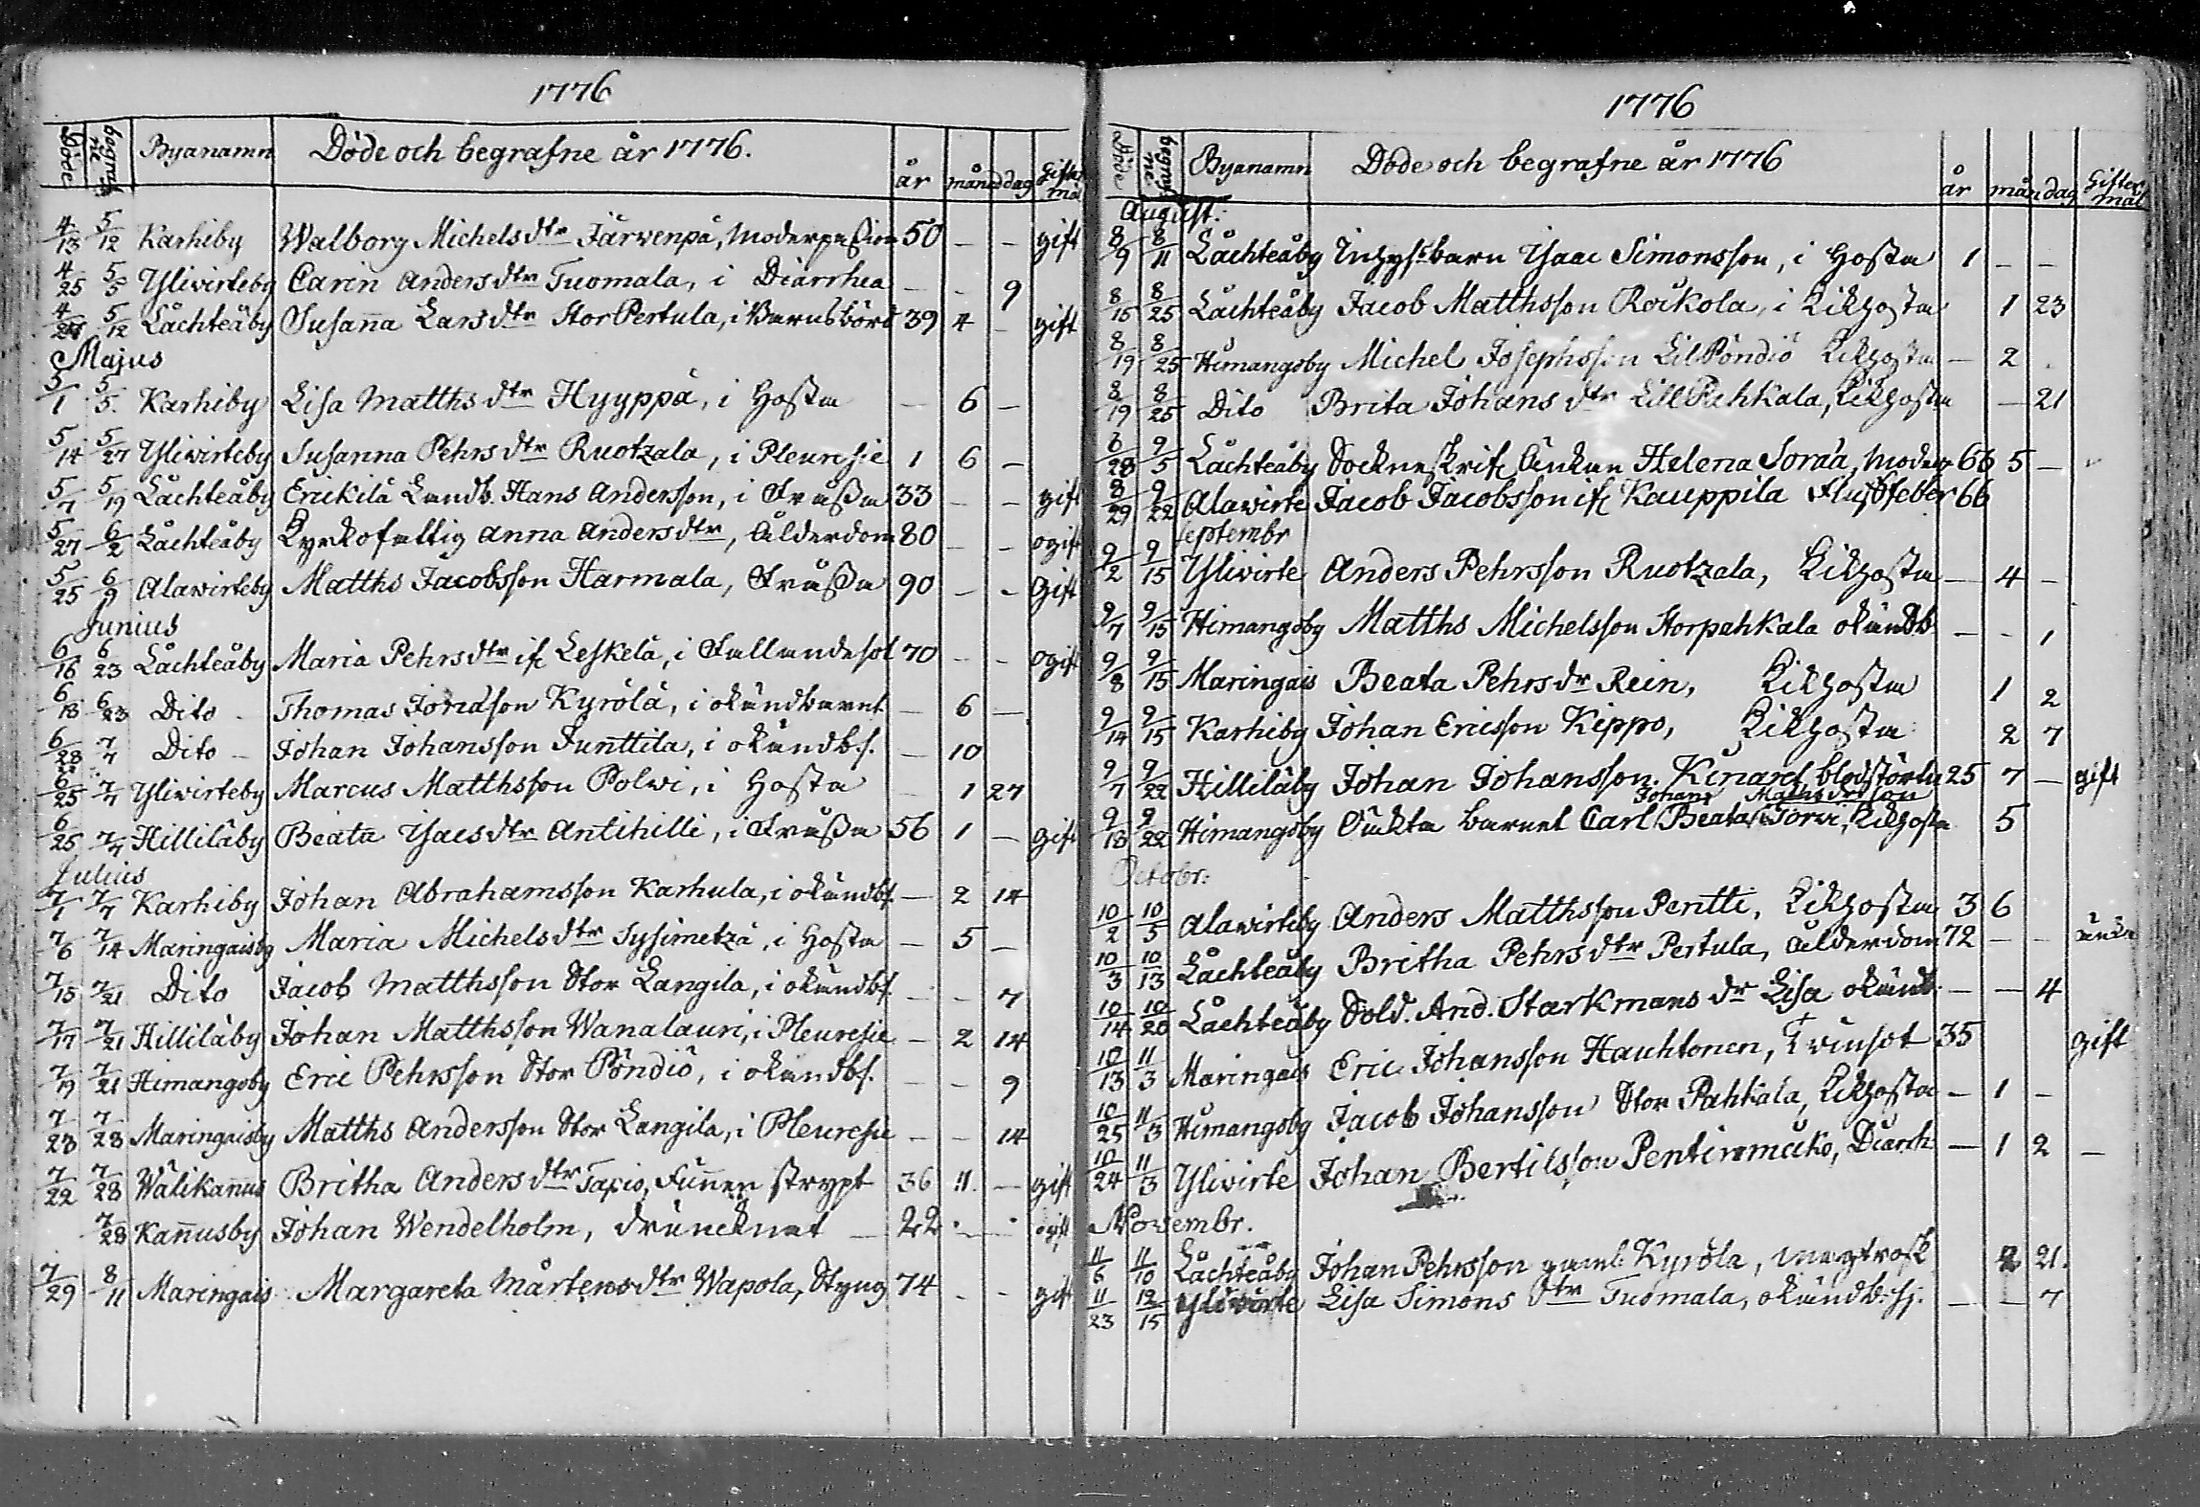 1776
Döde begrafne Byanamn Döde och begrafne år 1776. år månd dag Gifter mål
4/13 5/12 Karhiby Walborg Michels dtr Järwenpä, moderpassion 50 - - gift
4/25 5/5 Yliwirteby Carin Anders dtr Tuomala, i Diarrhea - - 9
4/27 5/12 Låchteåby Susanna Lars dtr Stor Pertula, i Barnsbörd 39 4 - gift
Majus
5/1 5/5. Karhiby Lisa Matths dtr Hyyppä, i Hosta - 6 -
5/14 5/27 Yliwirteby Susanna Pehrs dtr Ruotzala, i Pleuresie 1 6 -
5/7 5/19 Låchteåby Erickilä Landb. Hans Andersson, i Tråssa 33 - - gift
5/27 6/2 Låchteåby Kyrkofattig Anna Anders dtr, Ålderdom 80 - - ogift
5/25 6/9 Alawirteby Matths Jacobsson Harmala, Tråssa 90 - - Gift
Junius
6/16 6/23 Låchteåby Maria Pehrs dtr if Leskelä, i Fallandesot 70 - - ogift
6/18 6/23 Dito - Thomas Jonasson Kyrölä, i okändbarns - 6 -
6/28 7/7 Dito - Johan Johansson Junttila, i okändb.s. - 10
6/25 7/7 Yliwirteby Marcus Matthsson Polwi, i Hosta - 1 27
6/25 7/7 Hillilåby Beata Isacs dtr Antihilli, i Tråssa 56 1 - gift
Julius
7/1 7/7 Karhiby Johan Abrahamsson Karhula, i okändbs. - 2 14
7/6 7/14 Maringaisby Maria Michels dtr Sysimetzä, i Hosta - 5 -
7/15 7/21 Dito Jacob Matthsson Stor Langila, i okändbs. - - 7
7/17 7/21 Hillilåby Johan Matthsson Wanalauri, i Pleuresie - 2 14
7/19 7/21 Himangoby Eric Pehrsson Stor Pöndiö, i okändbs. - - 9
7/23 7/28 Maringaisby Matths Andersson Stor Langila, i Pleuresie - - 14
7/22 7/28 Wälikannus Britha Anders dtr Tapio, Funnen strypt 36 11. - gift
7/28 Kannusby Johan Wendelholm, druncknat - 22 - - ogift
7/29 8/11 Maringais Margareta Mårtens dtr Wapola, Styng 74 - - gift
1776
Döde begrafne Byanamn Döde och begrafne år 1776 år mån dag Gifter mål
August:
8/9 8/11 Låchteåby Inhysbarn Isaac Simonsson, i Hosta 1 - -
8/15 8/25 Låchteåby Jacob Matthsson Rockola, i Kikhosta 1 23
8/19 8/25 Himangoby Michel Josephsson Lil Pöndiö Kikhosta - 2
8/19 8/25 Dito Brita Johans dtr Lill Pahkala, Kikhosta - 21
8/28 9/5 Låchteåby Socknskrif. Änkan Helena Soraa, moder 66 5 -
8/29 9/22 Alawirte Jacob Jacobsson if Kauppila Flussfeber 66
Septembr
9/2 9/15 Yliwirte Anders Pehrsson Ruotzala, Kikhosta - 4 -
9/7 9/15 Himangoby Matths Michelsson Storpahkala okändb - - 1
9/8 9/15 Maringais Beata Pehrs dr Rein, Kikhosta 1 2
9/14 9/15 Karhiby Johan Ericsson Kippo, Kikhosta 2 7
9/7 9/22 Hillilåby Johan Johansson Kinard blodstörtn 25 7 - gift
Johans Mathsdrs son
9/18 9/22 Himangoby Oäkta barnet Carl Beata Torvi, Kikhosta 5
Octobr:
10/2 10/5 Alawirteby Anders Matthsson Pentti, Kikhosta 3 6
10/3 10/13 Låchteåby Britha Pehrs dtr Pertula, Ålderdom 72 - - änka
10/14 10/20 Låchteåby Sold. And. Starkmans dr Lisa okänd. - - 4
10/13 11/3 Maringais Eric Johansson Hauhtonen, Tvinsot 35 gift
10/25 11/3 Himangoby Jacob Johansson Stor Pahkala, Kikhosta - 1 -
10/24 11/3 Yliwirte Johan Bertilsson Pentinmäki, Diarrh - 1 2 -
Novembr.
11/6 11/10 Låchteåby Johan Pehrsson gaml. Kyrölä, 2 21.
11/23 12/15 Yliwirte Lisa Simons dtr Tuomala, okändb.sj. - - 7